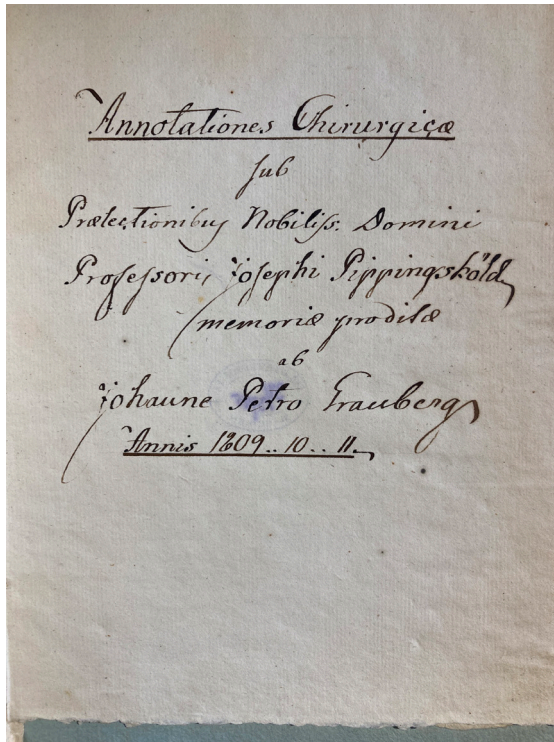 Annotationes Chirurgicæ
sub
Prælectionibus Nobiliss. Domini
Professoris Josephi Pippingsköld
memoriæ proditæ
ab
Johanne Petro Grauberg
Annis 1809..10..11.